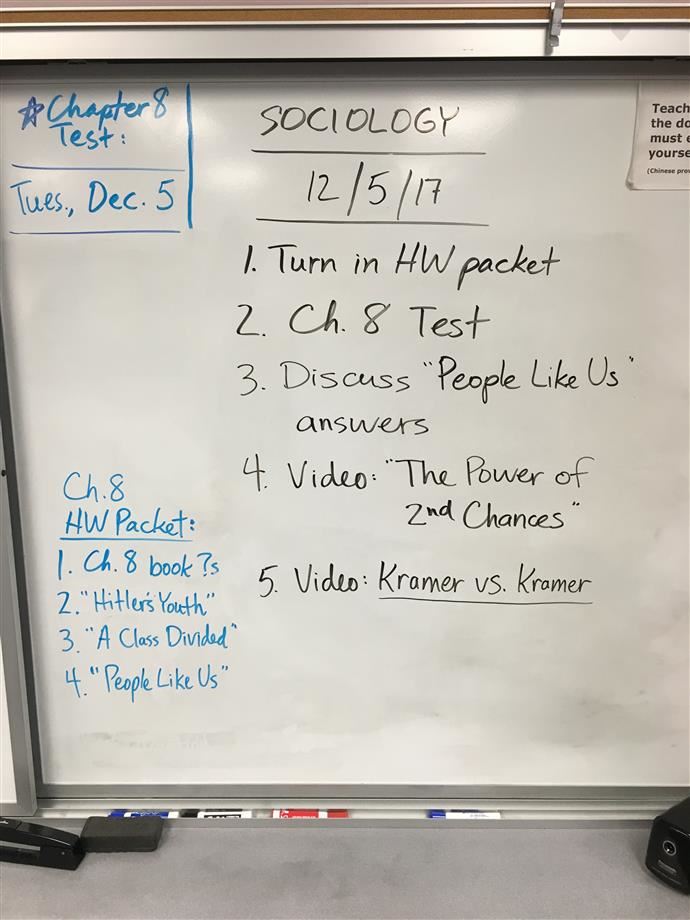 ☆Chapter 8
Test:
Tues., Dec. 5
SOCIOLOGY
12/5/17
1. Turn in HW packet
2. Ch. 8 Test
3. Discuss "People Like Us"
answers
4. Video: "The Power of
2nd Chances"
5. Video: Kramer vs. Kramer
Ch. 8
HW Packet:
1. Ch. 8 book ?s
2. "Hitler's Youth"
3. "A Class Divided"
4. "People Like Us"
Teach
the do
must e
yourse
(Chinese prov